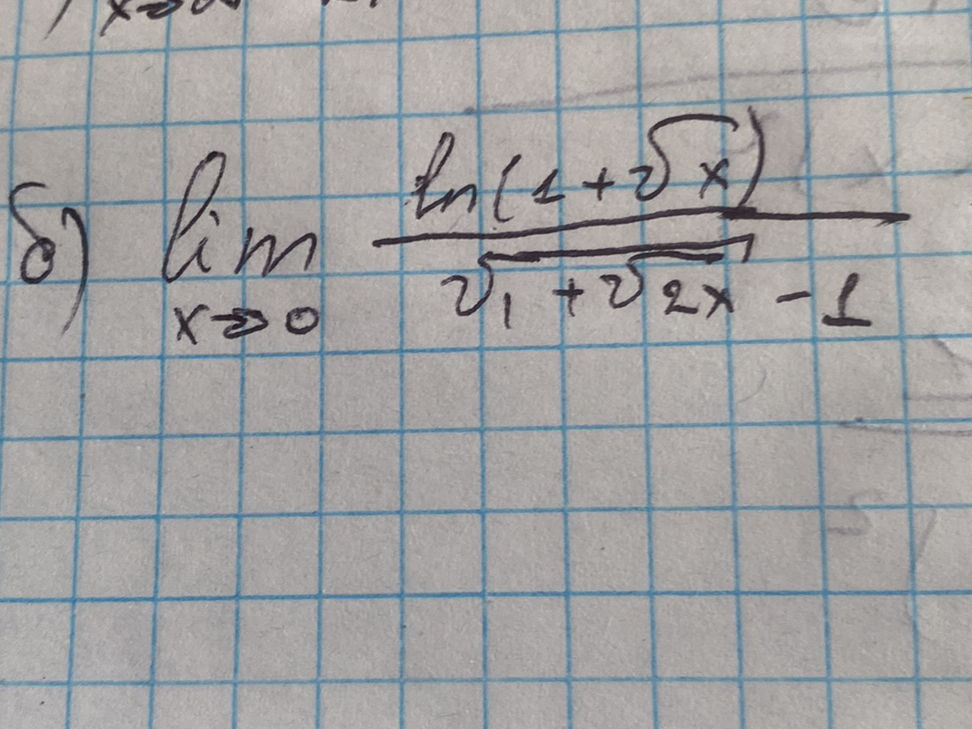 x→∞
б) lim x→0 ln(1+√x) / √(1+√2x) -1